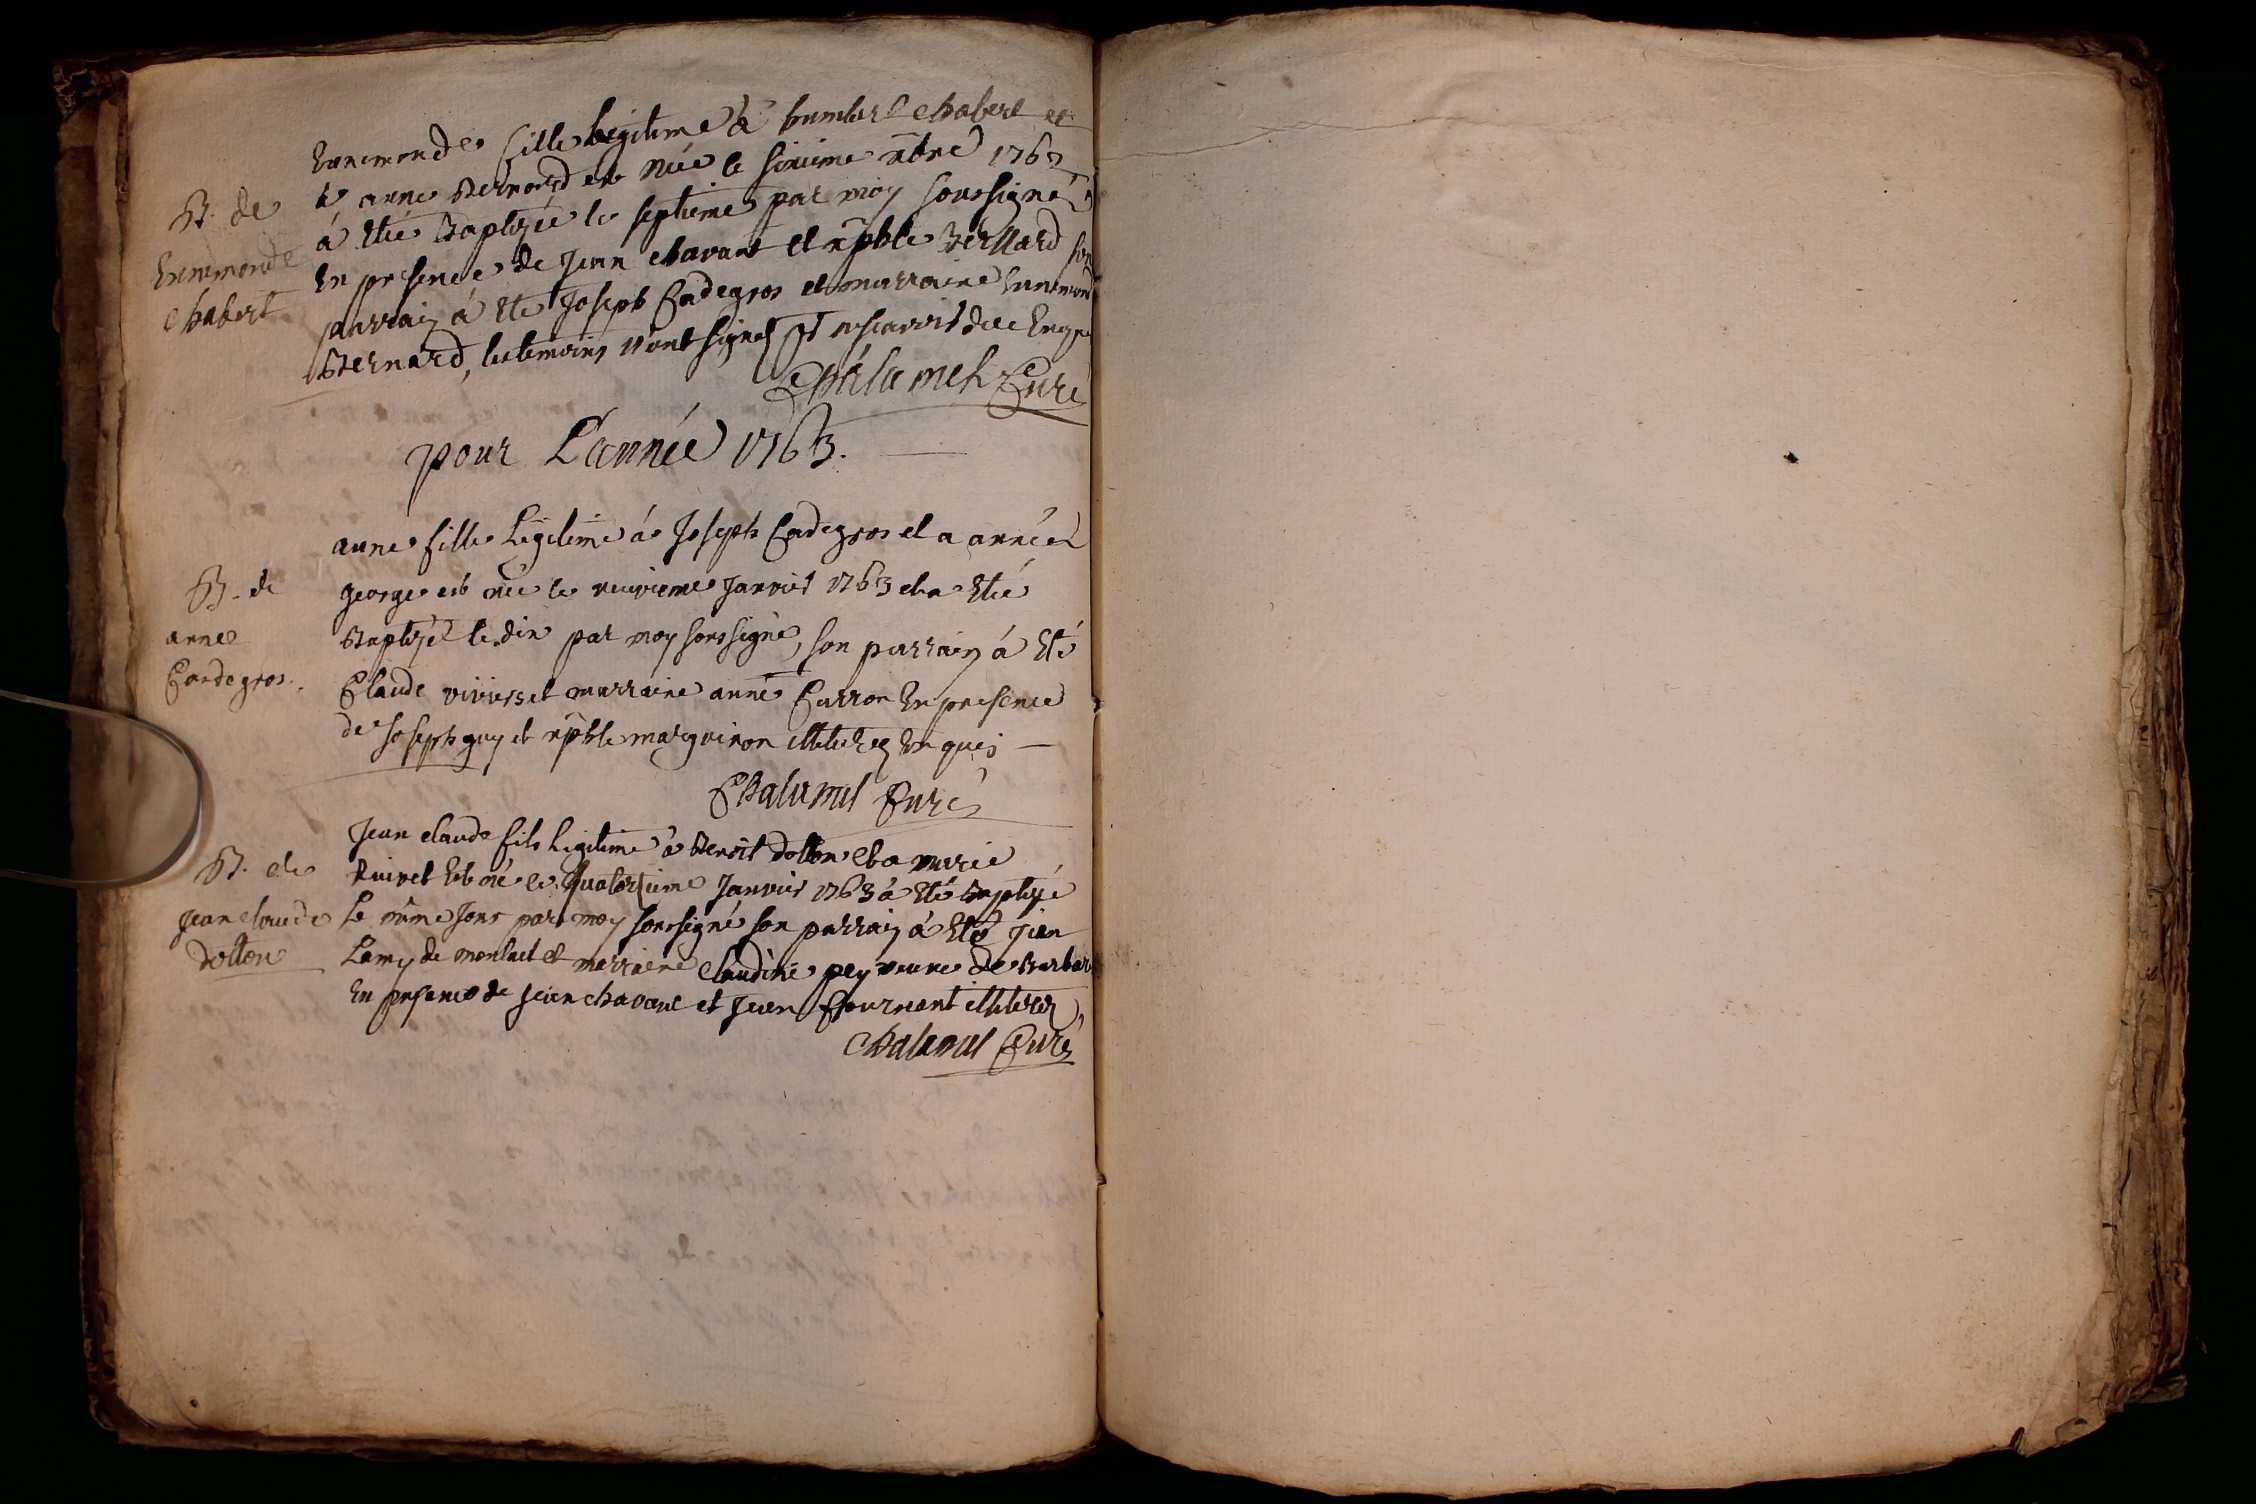 B. de
Ennemonde
chabert
Ennemonde fille legitime à humbert chabert et
à anne Bernard est née le sixieme 1762
à Eté Baptizée le septieme par moy soussigné
En presence de Jean chavant et Bernard son
parrain à Eté Joseph Cadegros et marraine Ennemonde
Bernard, les temoins n'ont signés pr ne scavoir de ce Enquis
Chalamel Curé
pour L'année 1763.
B. de
anne
Cardegros.
anne fille Legitime à Joseph Cadegros et a anne
george est née le neuvieme Janvier 1763 et a Eté
Baptizée le dix par moy soussigné, son parrain à Eté
Claude viviers et marraine anne Carron En presence
de Joseph guy et marguiron illiterez Enquis
Chalamel Curé
B. de
Jean claude
dolton
Jean claude fils Legitime à Benoit dolton et a marie
Ruivet est né le Quatorzieme Janvier 1763 à Eté Baptizé
Le même Jour par moy soussigné son parrain à Eté Jean
Lamy de et marraine claudine peyveure de
En presence de Jean chavant et Jean Journant illiterez,
Chalamel Curé